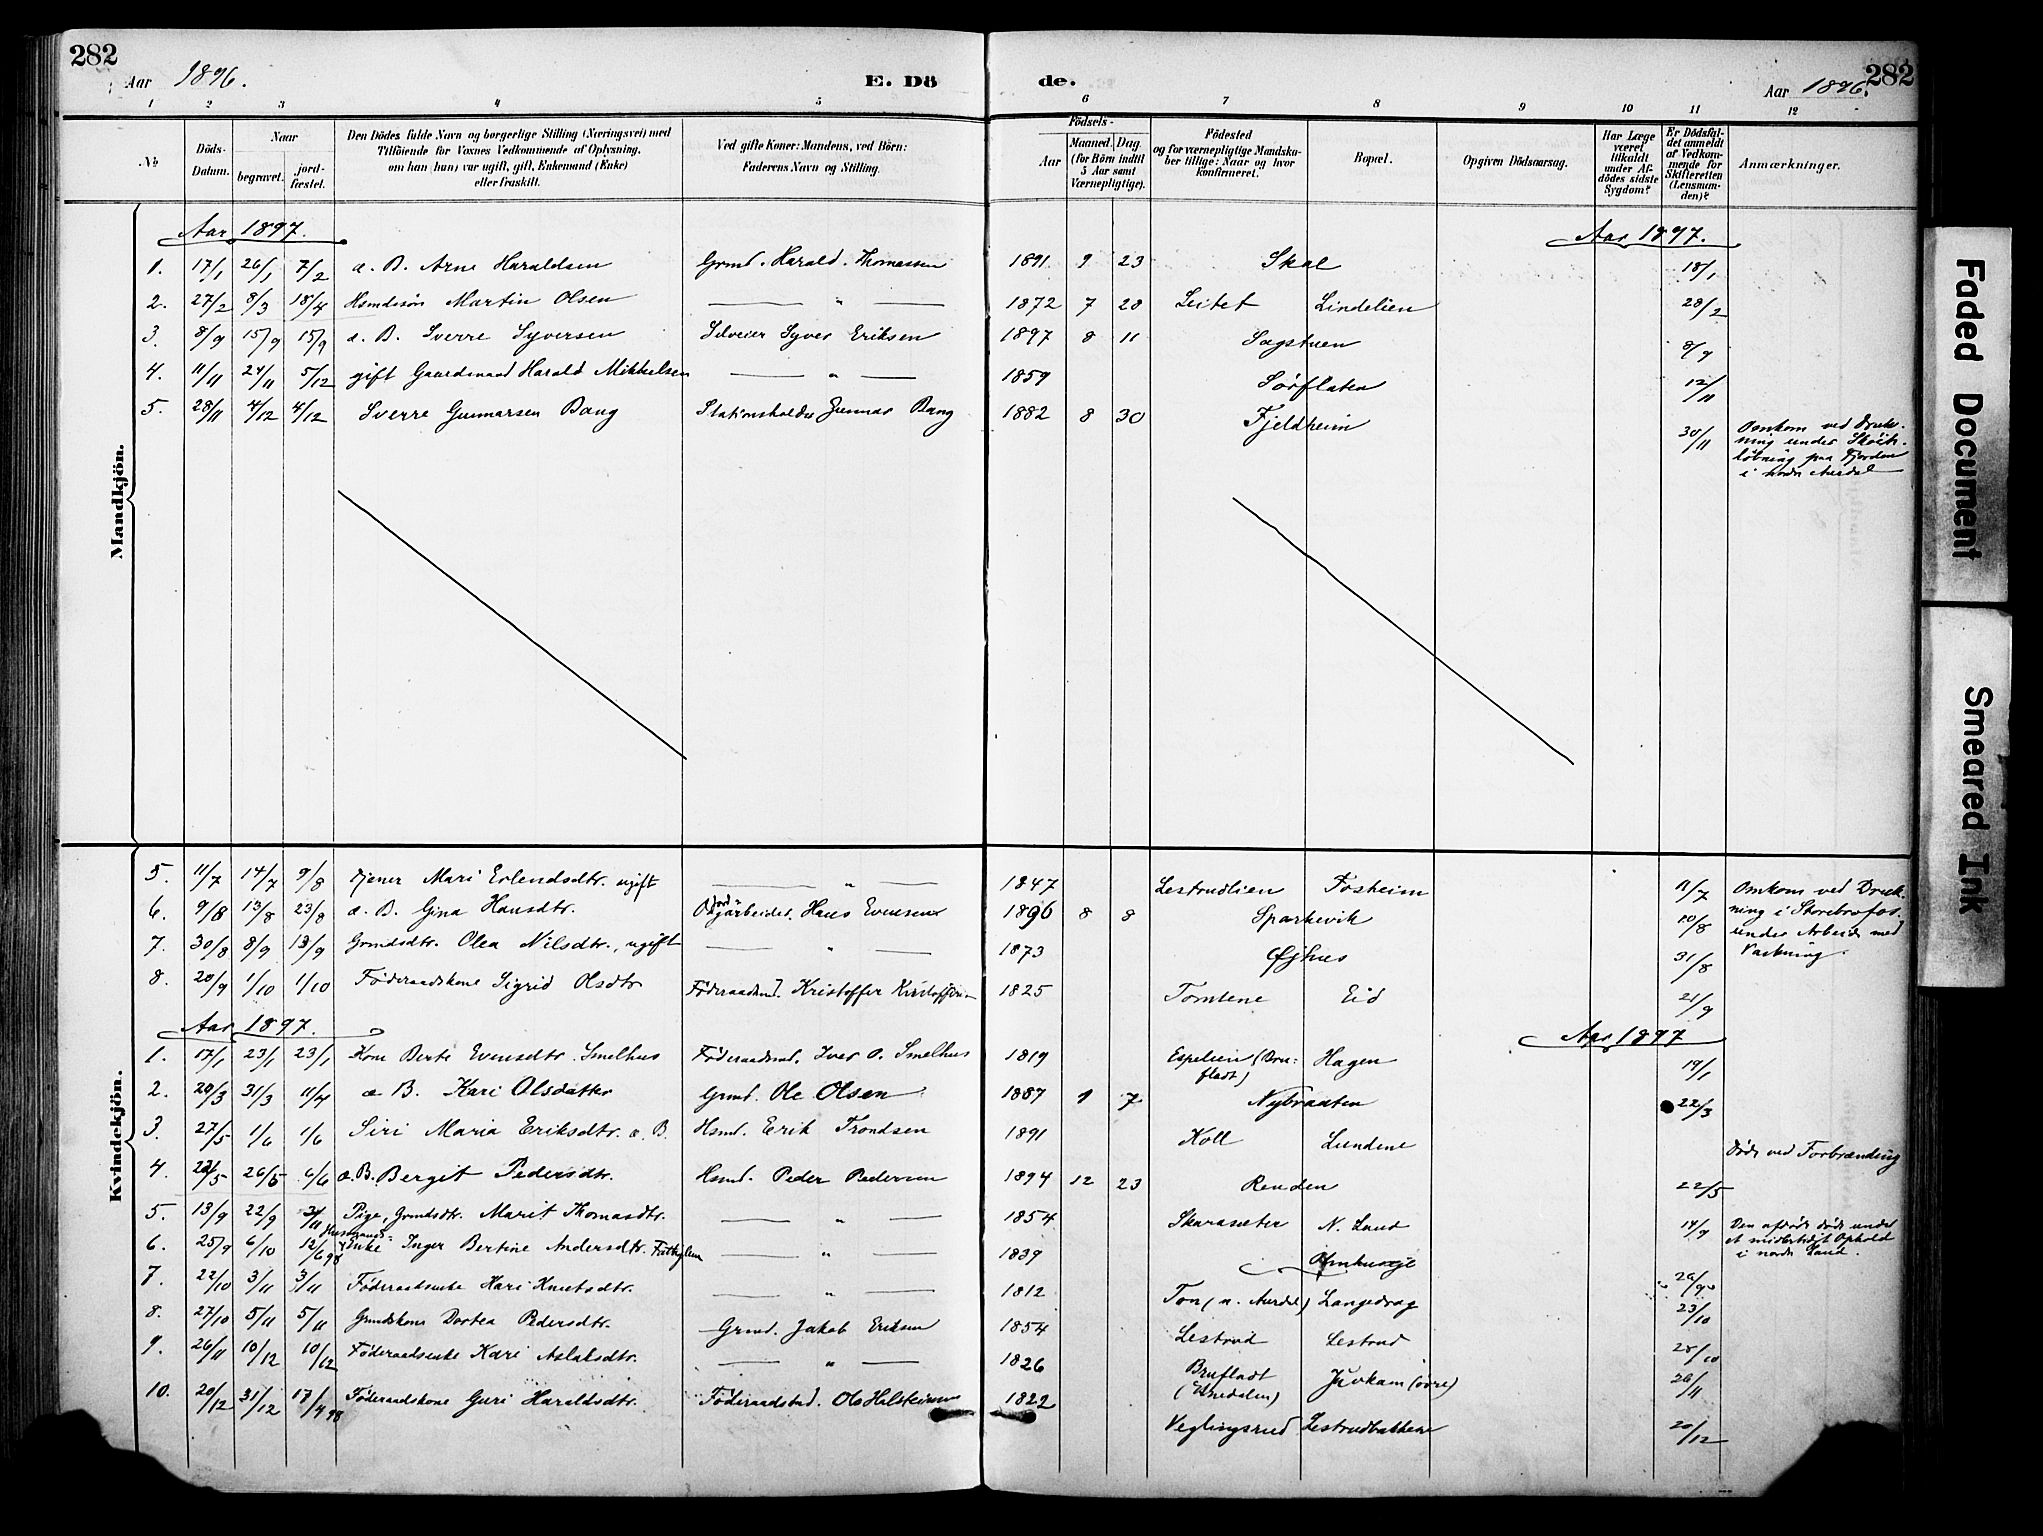 282
Aar 1896.
E. Dö
de.
Aar 1896.
282
1 2 3 4 5 6 7 8 9 10 11 12
No
Döds-Datum.
Naar
begravet.
jord-fæstet.
Den Dödes fulde Navn og borgerlige Stilling (Næringsvei) med
Tilföiende for Voxnes Vedkommende af Oplysning,
om han (hun) var ugift, gift, Enkemand (Enke)
eller fraskilt.
Ved gifte Koner: Mandens, ved Börn:
Faderens Navn og Stilling.
Födsels-
Aar
Maaned. Dag
(for Börn indtil
5 Aar samt
Værnepligtige).
Födested
og for værnepligtige Mandska-
ber tillige: Naar og hvor
konfirmeret.
Bopæl.
Opgiven Dödsaarsag.
Har Læge
været
tilkaldt
under Af-
dödes sidste
Sygdom?
Er Dödsfal-
det anmeldt
af Vedkom-
mende for
Skifteretten
(Lensman-
den)?
Anmærkninger.
Mandkjön.
Aar 1897.
Aar 1897.
1. 17/1 26/1 7/2 a. B. Arne Haraldsen Grmd. Harald Thomassen 1891 9 23 Skal 18/1
2. 27/2 8/3 18/4 Hsmdssön Martin Olsen — " — 1872 7 28 Leitet Lindelien 28/2
3. 8/9 15/9 15/9 a. B. Sverre Syversen Selveier Syver Eriksen 1897 8 11 Sagstuen 8/9
4. 11/11 24/11 5/12 gift Gaardmand Harald Mikkelsen — " — 1859 Sörflaten 12/11
5. 28/11 4/12 4/12 Sverre Gunnarsen Bang Stationsholder Gunnar Bang 1882 8 30 Fjeldheim 30/11 Omkom ved Druk-
ning under Sköite-
löbning paa Fjorden
i nordre Aurdal
Kvindekjön.
5. 11/7 14/7 9/8 tjener Mari Erlendsdtr. ugift — " — 1847 Lestrudlien Fosheim 11/7 Omkom ved Druk-
ning i Storebrofos
under Arbeide med
Vaskning.
6. 9/8 13/8 23/8 a. B. Gina Hansdtr. Hans Evensen 1896 8 8 Sparkevik 10/8
7. 30/8 8/9 13/9 Grmdsdtr. Olea Nilsdtr., ugift — " — 1873 Øjhus 31/8
8. 20/9 1/10 1/10 Föderaadskone Sigrid Olsdtr. Föderaadsmd. Kristoffer Kristoffersen 1825 Tomtene Eid 21/9
Aar 1897.
Aar 1897
1. 17/1 23/1 23/1 Kone Berte Evensdtr. Smelhus Föderaadsmd. Iver O. Smelhus 1819 Espelien (Bru-
fladt) Hagen 19/1
2. 20/3 31/3 11/4 a B. Kari Olsdatter Grmd. Ole Olsen 1887 1 7 Nybraaten 22/3
3. 27/5 1/6 1/6 Siri Maria Eriksdtr. a. B. Hsmd. Erik Trondsen 1891 Koll Lundene Döde ved Forbrænding
4. 22/5 26/5 6/6 a. B. Bergit Pedersdtr. Hsmd. Peder Pedersen 1894 12 23 Renden 22/5
5. 13/9 22/9 3/11 Pige, Grmdsdtr. Marit Thomasdtr. — " — 1854 Skarasæter N. Land 14/9 Den afdöde döde under
et midlertidigt Ophold
i nordre Land.
6. 25/9 6/10 12/6 98 Enke Inger Bertine Andersdtr. — " — 1839 26/9
7. 22/10 3/11 3/11 Föderaadsenke Kari Knutsdtr. — " — 1812 Ton (n. Aurdal) Langedrag 23/10
8. 27/10 5/11 5/11 Grmdskone Dortea Pedersdtr. Grmd. Jakob Eriksen 1854 Lestrud Lestrud 28/10
9. 26/11 10/12 10/12 Föderaadsenke Kari Aslaksdtr. — " — 1826 Brufladt Juvkam (övre) 26/11
10. 20/12 31/12 17/4 98 Föderaadskone Guri Haraldsdtr. Föderaadsmd. Ole Halsteinsen 1822 Veglingsrud Lestrudbakkene 20/12
Faded Document
Smeared Ink